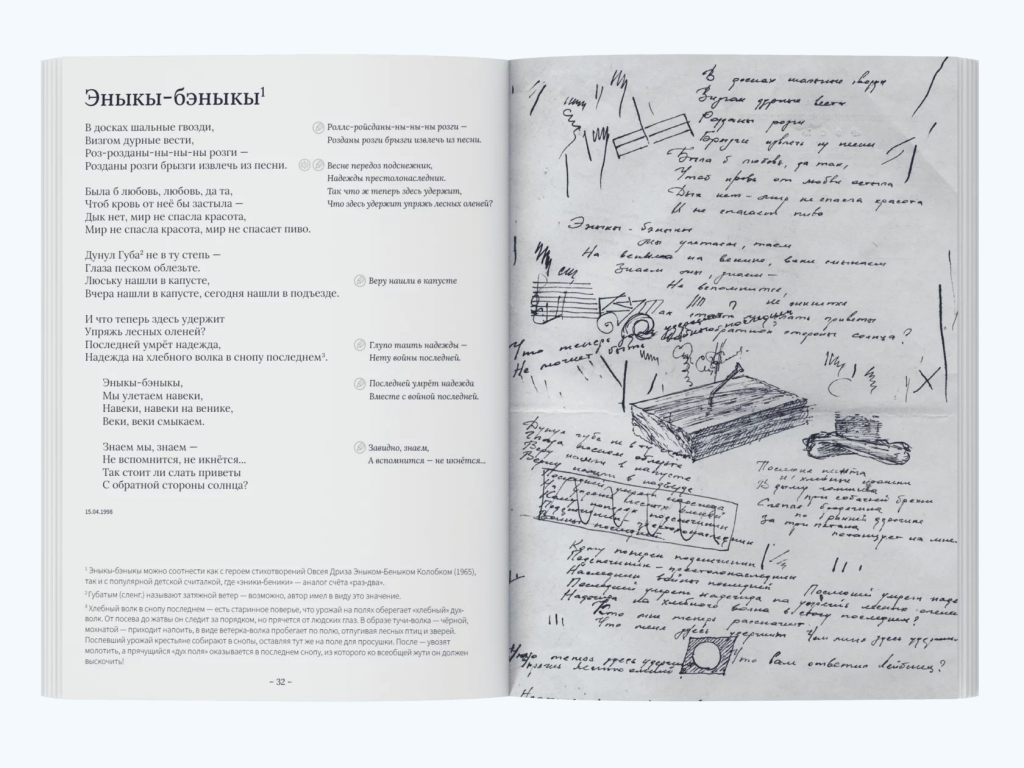 Эныкы-бэныкы¹
В досках шальные гвозди,
Визгом дурные вести,
Роз-розданы-ны-ны-ны розги —
Розданы розги брызги извлечь из песни.
Была б любовь, любовь, да та,
Чтоб кровь от неё бы застыла —
Дык нет, мир не спасла красота,
Мир не спасла красота, мир не спасает пиво.
Дунул Губа² не в ту степь —
Глаза песком облезьте.
Люську нашли в капусте,
Вчера нашли в капусте, сегодня нашли в подъезде.
И что теперь здесь удержит
Упряжь лесных оленей?
Последней умрёт надежда,
Надежда на хлебного волка в снопу последнем³.
Эныкы-бэныкы,
Мы улетаем навеки,
Навеки, навеки на венике,
Веки, веки смыкаем.
Знаем мы, знаем —
Не вспомнится, не икнётся...
Так стоит ли слать приветы
С обратной стороны солнца?
15.04.1998
Роллс-ройсданы-ны-ны-ны розги —
Розданы розги брызги извлечь из песни.
Весне передоз подснежник,
Надежды престолонаследник.
Так что ж теперь здесь удержит,
Что здесь удержит упряжь лесных оленей?
Веру нашли в капусте
Глупо таить надежды —
Нету войны последней.
Последней умрёт надежда
Вместе с войной последней.
Завидно, знаем,
А вспомнится — не икнётся...
¹ Эныкы-бэныкы можно соотнести как с героем стихотворений Овсея Дриза Эныком-Беныком Колобком (1965),
так и с популярной детской считалкой, где «эники-беники» — аналог счёта «раз-два».
² Губатым (сленг.) называют затяжной ветер — возможно, автор имел в виду это значение.
³ Хлебный волк в снопу последнем — есть старинное поверье, что урожай на полях оберегает «хлебный» дух-
волк. От посева до жатвы он следит за порядком, но прячется от людских глаз. В образе тучи-волка — чёрной,
мохнатой — приходит напоить, в виде ветерка-волка пробегает по полю, отпугивая лесных птиц и зверей.
Поспевший урожай крестьяне собирают в снопы, оставляя тут же на поле для просушки. После — увозят
молотить, а прячущийся «дух поля» оказывается в последнем снопу, из которого ко всеобщей жути он должен
выскочить!
– 32 –
В досках шальные гвозди
Визгом дурные вести
Розданы розги
Брызги извлечь из песни
Была б любовь, да так,
Чтоб кровь от любви остыла
Дык нет – мир не спасла красота
И не спасает пиво
Эныкы - бэныкы
Мы улетаем, таем
На венике, веки смыкаем
Знаем мы, знаем —
Не вспомнится,
не икнётся
Так слать приветы
обратной стороны солнца?
Что теперь удержит
Не может быть
Дунул губа не в ту степь
Глаза песком облезьте
Веру нашли в капусте
Вчера нашли в подъезде
Последней умрет надежда
В дыму
при собачьей брани
За три пятака
Последней умрет надежда
Надежда на хлебного волка в последнем?
Что меня здесь удержит
Что теперь здесь удержит
Что вам ответил Лейбниц?